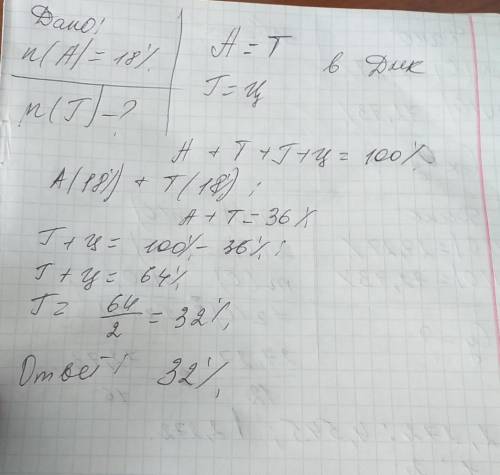 Дано:
n(А) = 18%
n(Г) - ?
А = Т
Г = Ц
в Днк
А + Т + Г + Ц = 100%
А(18%) + Т(18%);
А + Т = 36%
Г + Ц = 100% - 36%;
Г + Ц = 64%
Г = 64/2 = 32%;
Ответ: 32%;